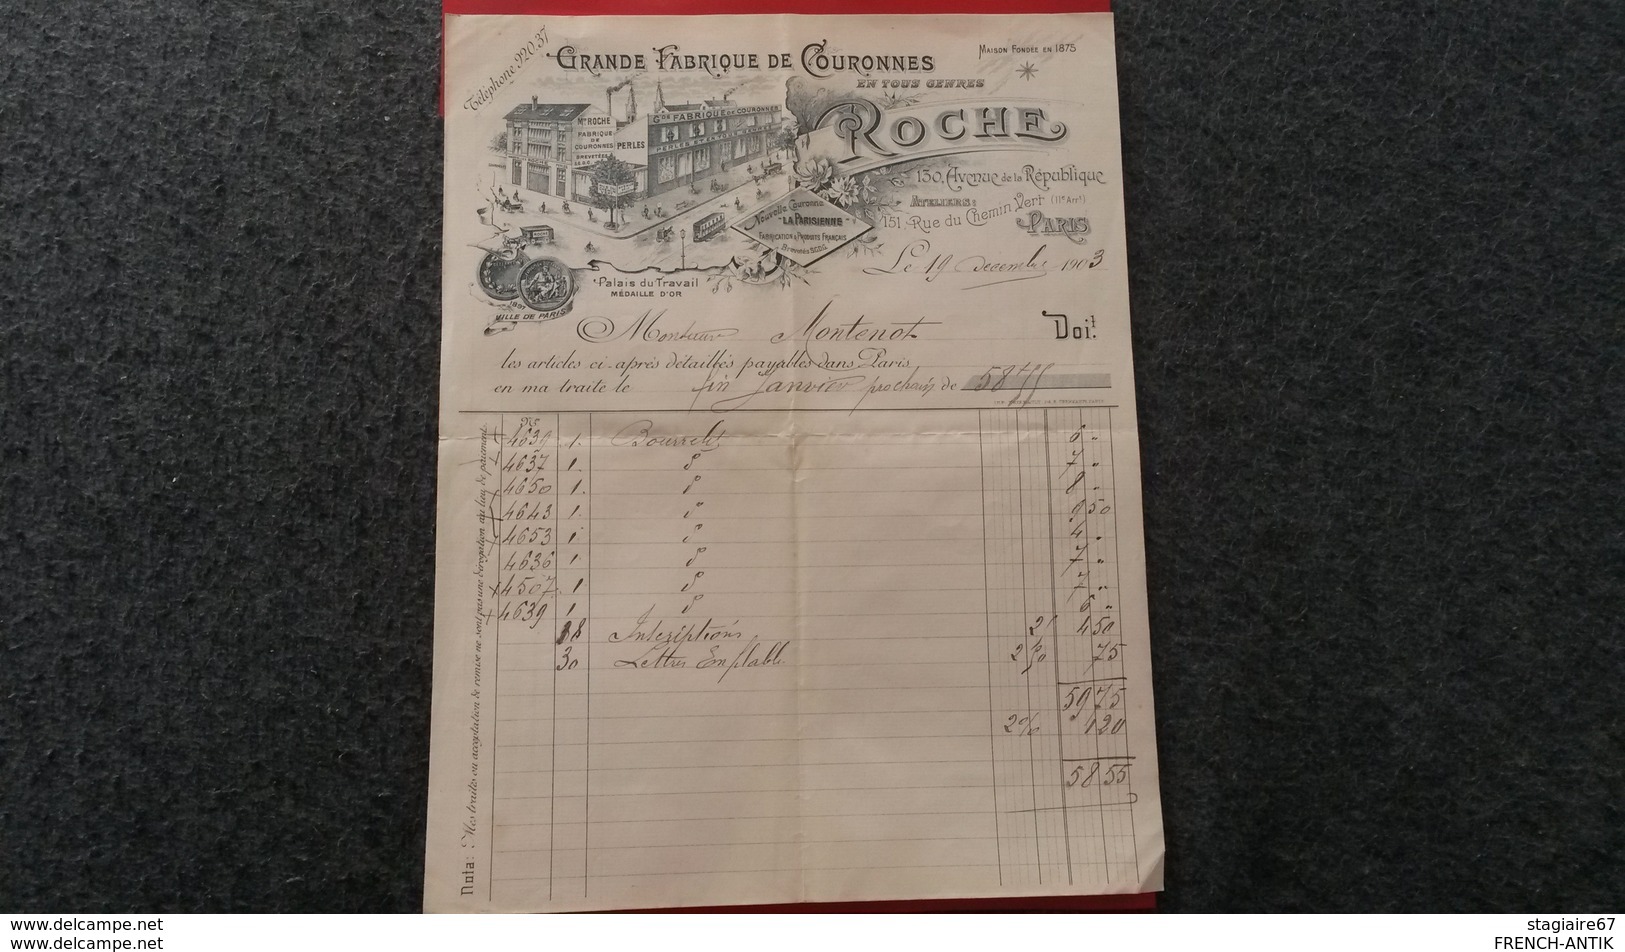 Téléphone 920.37
GRANDE FABRIQUE DE COURONNES
EN TOUS GENRES
MAISON FONDÉE EN 1875
ROCHE
130, Avenue de la République
ATELIERS:
151, Rue du Chemin Vert (11e Arrt)
PARIS
Mon ROCHE
FABRIQUE
DE
COURONNES
BREVETÉES
S.G.D.G.
PERLES
Gde FABRIQUE DE COURONNES
Nouvelle Couronne
"LA PARISIENNE"
FABRICATION & PRODUITS FRANÇAIS
Brevetés S.G.D.G.
Palais du Travail
MÉDAILLE D'OR
1891
VILLE DE PARIS
Le 19 décembre 1903
Monsieur Montenot Doit
les articles ci-après détaillés payables dans Paris
en ma traite le fin Janvier prochain de 58 55
No
4639 1. Bourrelet 6 "
4637 1. d° 7 "
4650 1. d° 8 "
4643 1. d° 9 50
4653 1 d° 4 "
4636 1 d° 7 "
4507 1 d° 7 "
4639 1 d° 6 "
18 Inscriptions 4 50
30 Lettres Emplable 2 50 75
59 75
2% 1 20
58 55
Nota: Mes traites ou acceptation de remise ne sont pas une dérogation au lieu de paiement.
www.delcampe.net
www.delcampe.net
stagiaire67
FRENCH-ANTIK